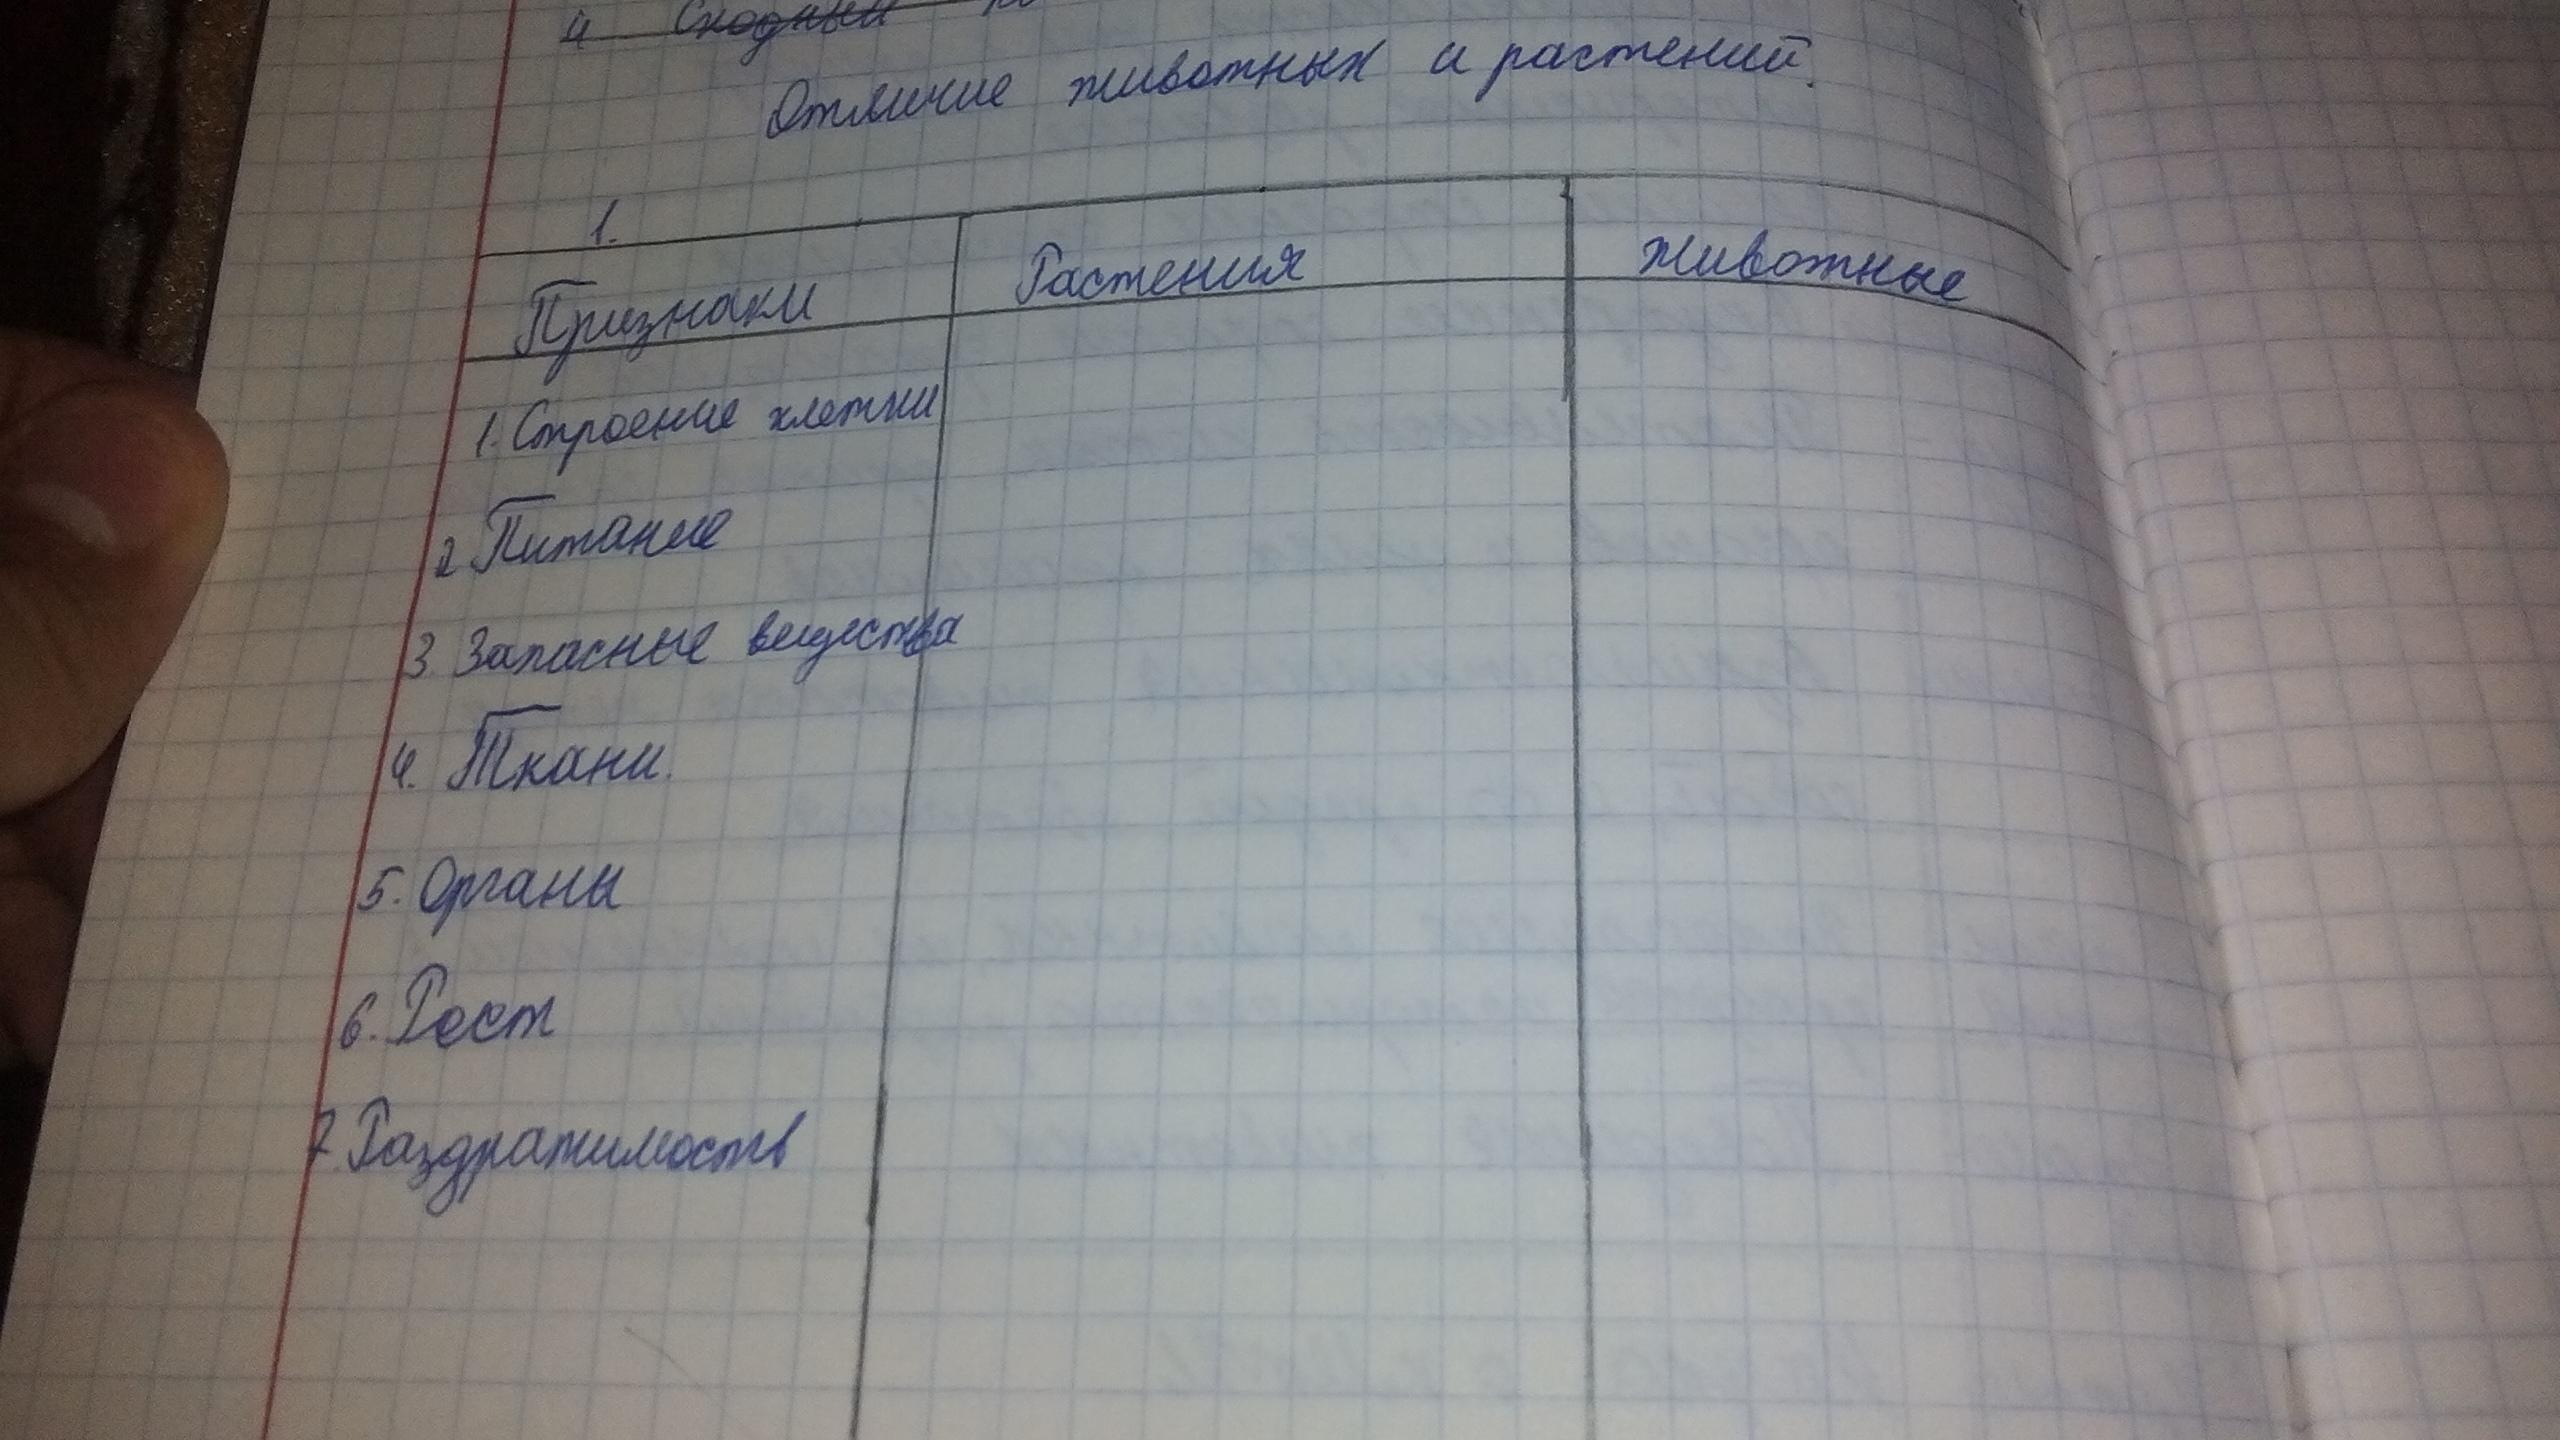 и Сходный
Отличие животных и растений.
1.
Признаки Растения Животные
1. Строение клетки
2 Питание
3. Запасные вещества
4. Ткани.
5. Органы
6. Рост
7. Раздражимость